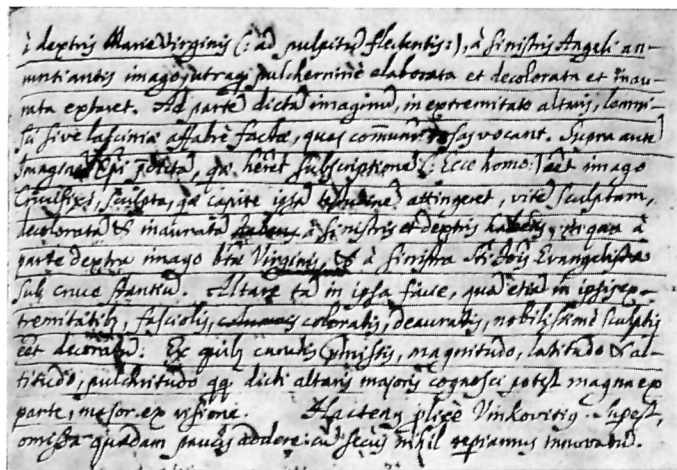 à dextris Mariæ Virginis (: ad pulpitũ flectentis:), à sinistris Angeli an-
nuntiantis imago, utraq; pulcherrimè elaborata et decolorata et inau-
rata extaret. Ad partẽ dictaꝝ imaginũ, in extremitate altaris,
sive lasciniæ affabrè factæ, quas vocant. Supra autẽ
Imaginẽ pdictã, quæ hẽret subscriptionẽ (: Ecce homo :) eẽt imago
Crucifixi, sculpta, quæ capite ipsã testudinẽ attingeret, vitẽ sculptam,
decoloratã & inauratã à sinistris et dextris habens, atque à
parte dextra imago btæ Virginis, & à sinistra Sti Jõis Evangelistæ
sub cruce stantiũ. Altare tã in ipsa facie, quã etiã in ipsis ex-
tremitatib9, fasciolis, coloratis, deauratis, nobilissimè sculptis
eẽt decoratũ. Ex quib9 magnitudo, latitudo & al-
titudo, pulchritudo qq; dicti altaris majoris cognosci potest magna ex
parte, meõr. ex visione. Hactenus Vinkovitius. Supest,
omissa quædam paucis addere: cũ secus nihil repiamus innovatũ.